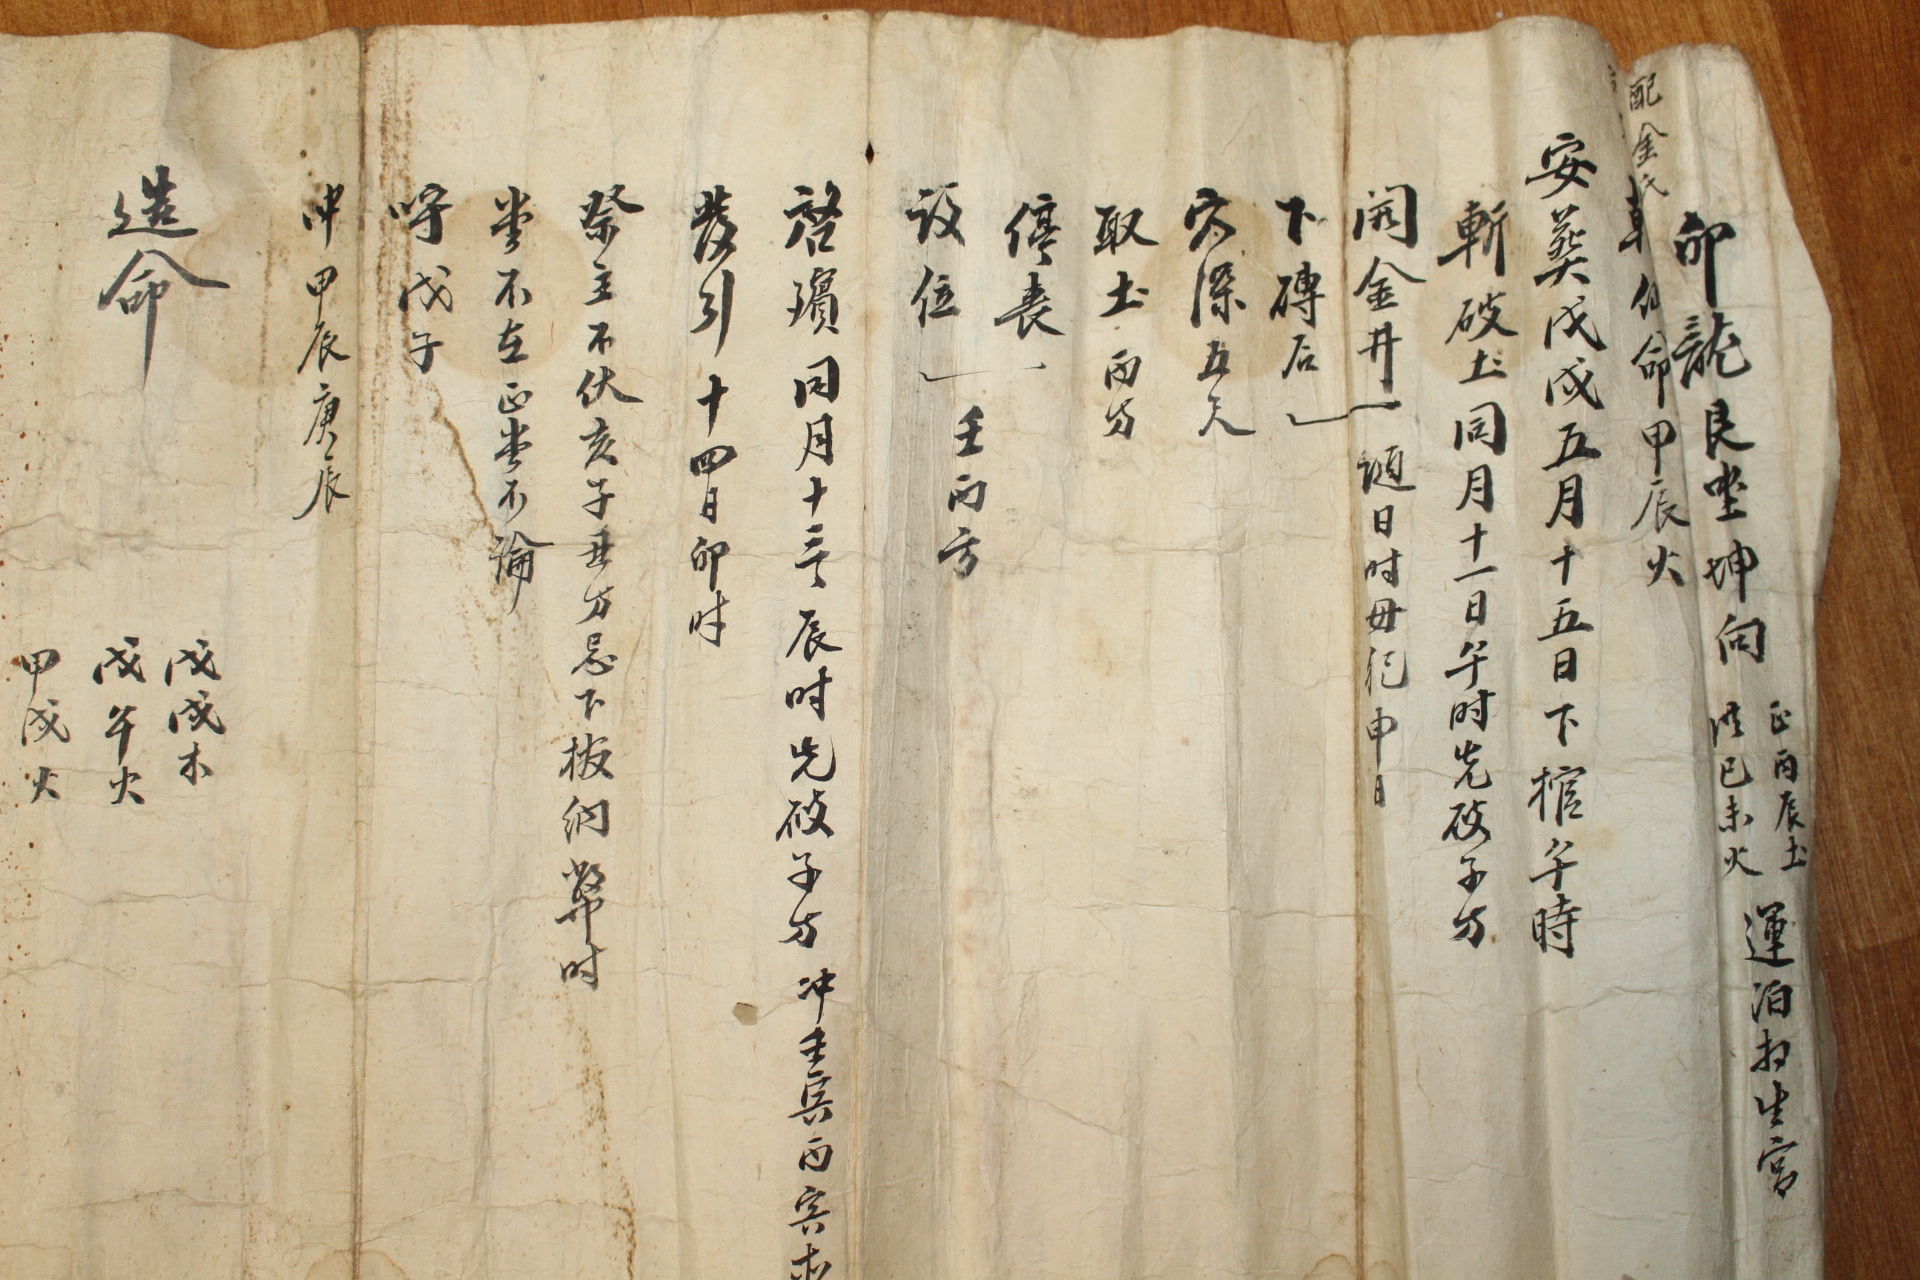 卯龍艮坐坤向
正丙辰土
洪己未火
運泊胎生宮
配金氏
乾仙命甲辰火
安葬戊戌五月十五日下棺午時
斬破土同月十一日午时先破子方
開金井
下磚后
随日时毋犯申日
穴深五尺
取土丙方
停丧
設位
壬丙方
啓殯同月十三日辰时先破子方冲壬寅丙寅
發引十四日卯时
祭主不伏亥子丑方忌下板納幣时
坐不在正坐不論
呼戊子
冲甲辰庚辰
造命
戊戌木
戊午火
甲戌火